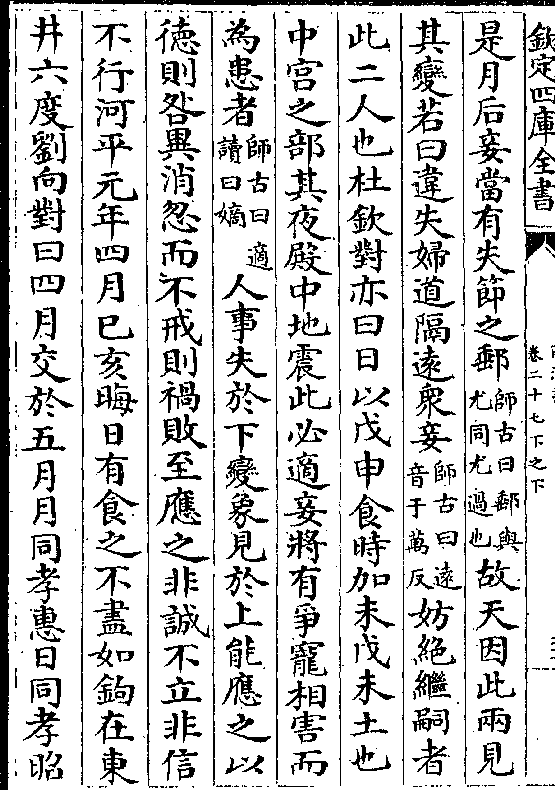 欽定四庫全書
卷二十七下之下
是月后妾當有失節之郵師古曰郵與尤同尤過也故天因此兩見
其變若曰違失婦道隔遠衆妾師古曰遠音于萬反妨絶繼嗣者
此二人也杜欽對亦曰日以戊申食時加未戊未土也
中宫之部其夜殿中地震此必適妾將有爭寵相害而
為患者師古曰適讀曰嫡人事失於下變象見於上能應之以
德則咎異消忽而不戒則禍敗至應之非誠不立非信
不行河平元年四月巳亥晦日有食之不盡如鉤在東
井六度劉向對曰四月交於五月月同孝惠日同孝昭